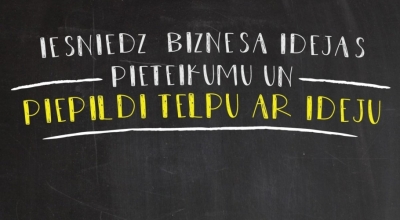 IESNIEDZ BIZNESA IDEJAS
PIETEIKUMU UN
PIEPILDI TELPU AR IDEJU